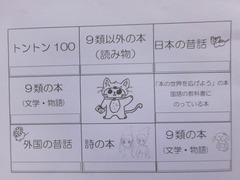 トントン100
９類以外の本
（読み物）
日本の昔話
９類の本
（文学・物語）
「本の世界を広げよう」の本
国語の教科書に
のっている本
外国の昔話
詩の本
９類の本
（文学・物語）